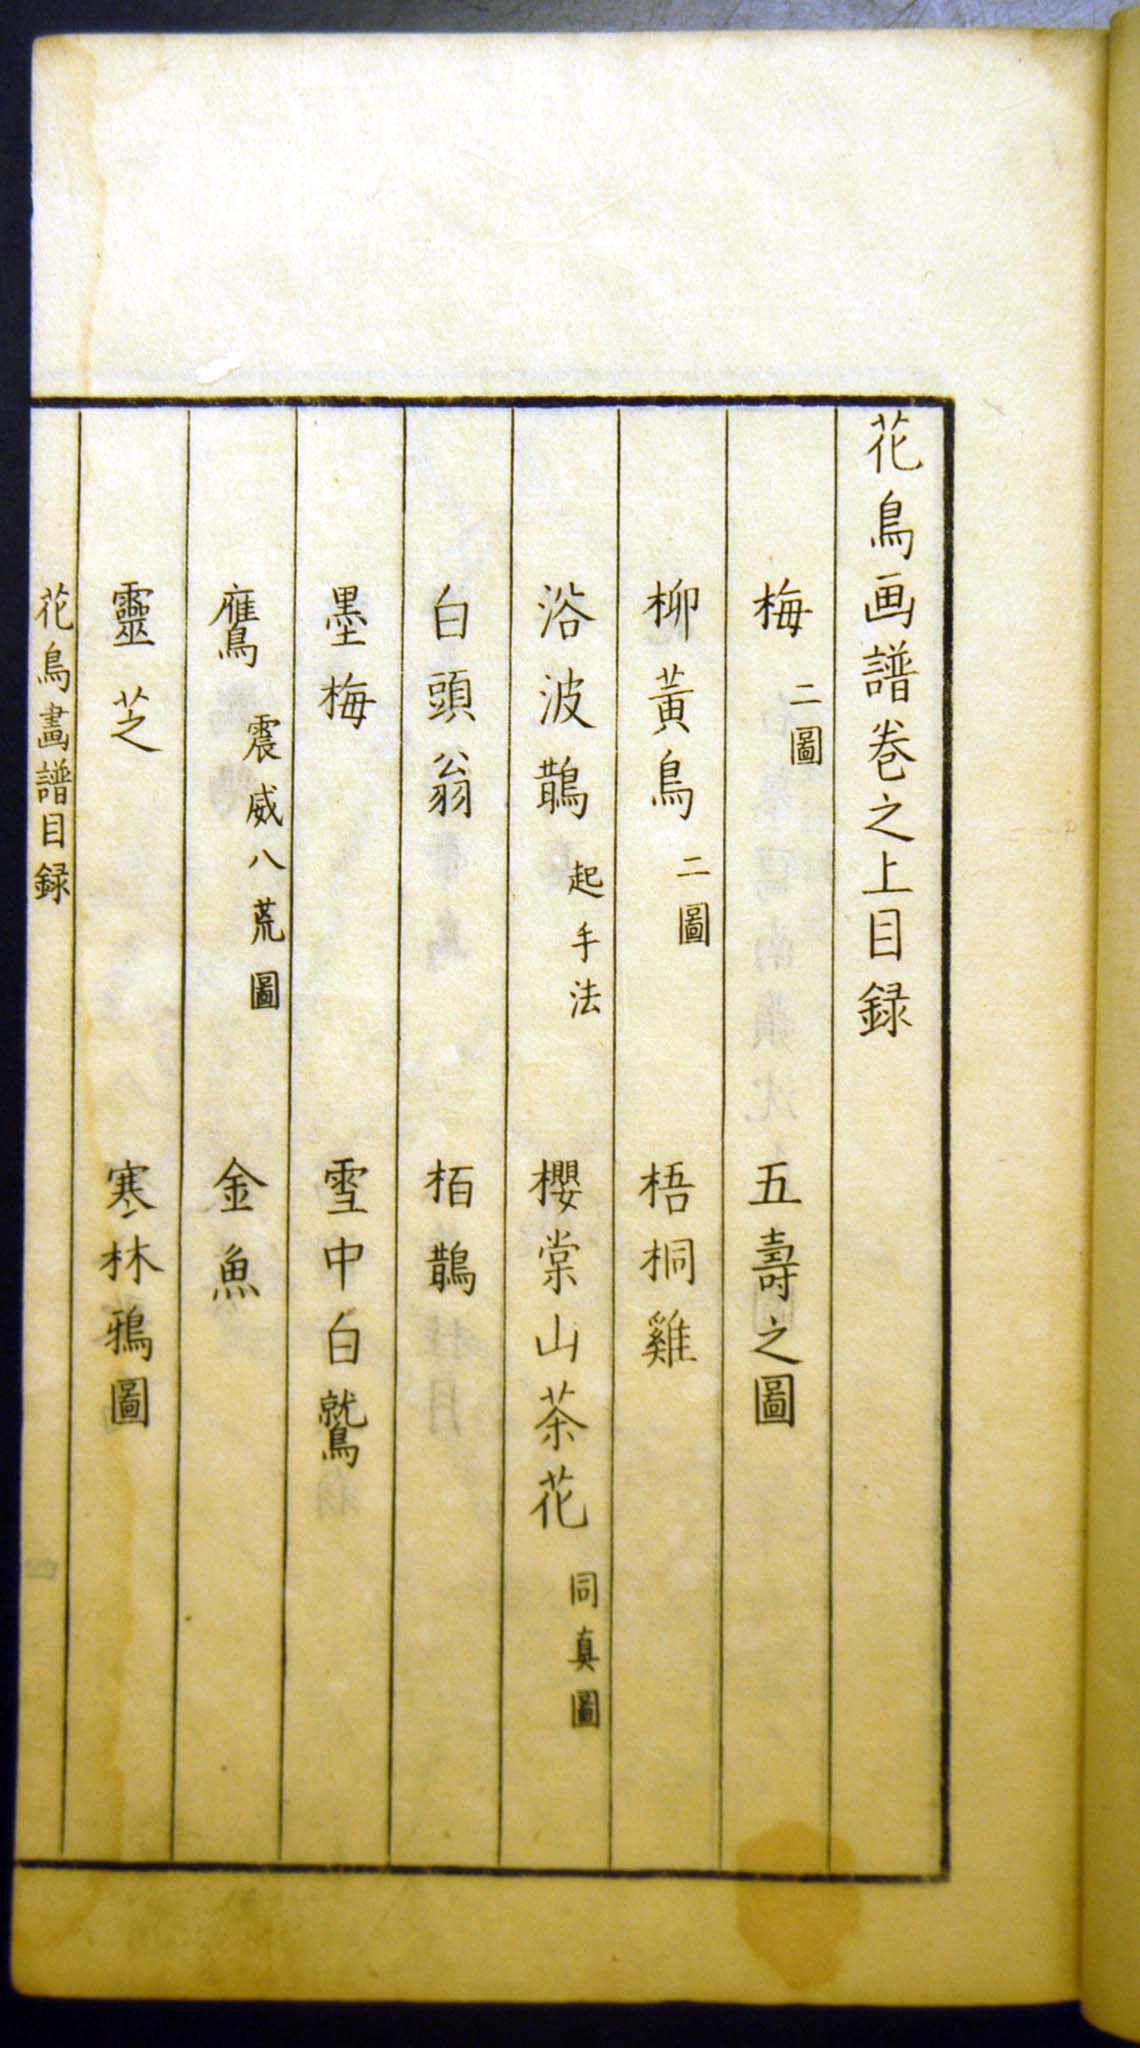 花鳥画譜巻之上目録
梅 二圖 五壽之圖
柳黃鳥 二圖 梧桐雞
浴波鵲 起手法 櫻棠山茶花 同真圖
白頭翁 栢鵲
墨梅 雪中白鷲
鷹 震威八荒圖 金魚
靈芝 寒林鴉圖
花鳥畫譜目録